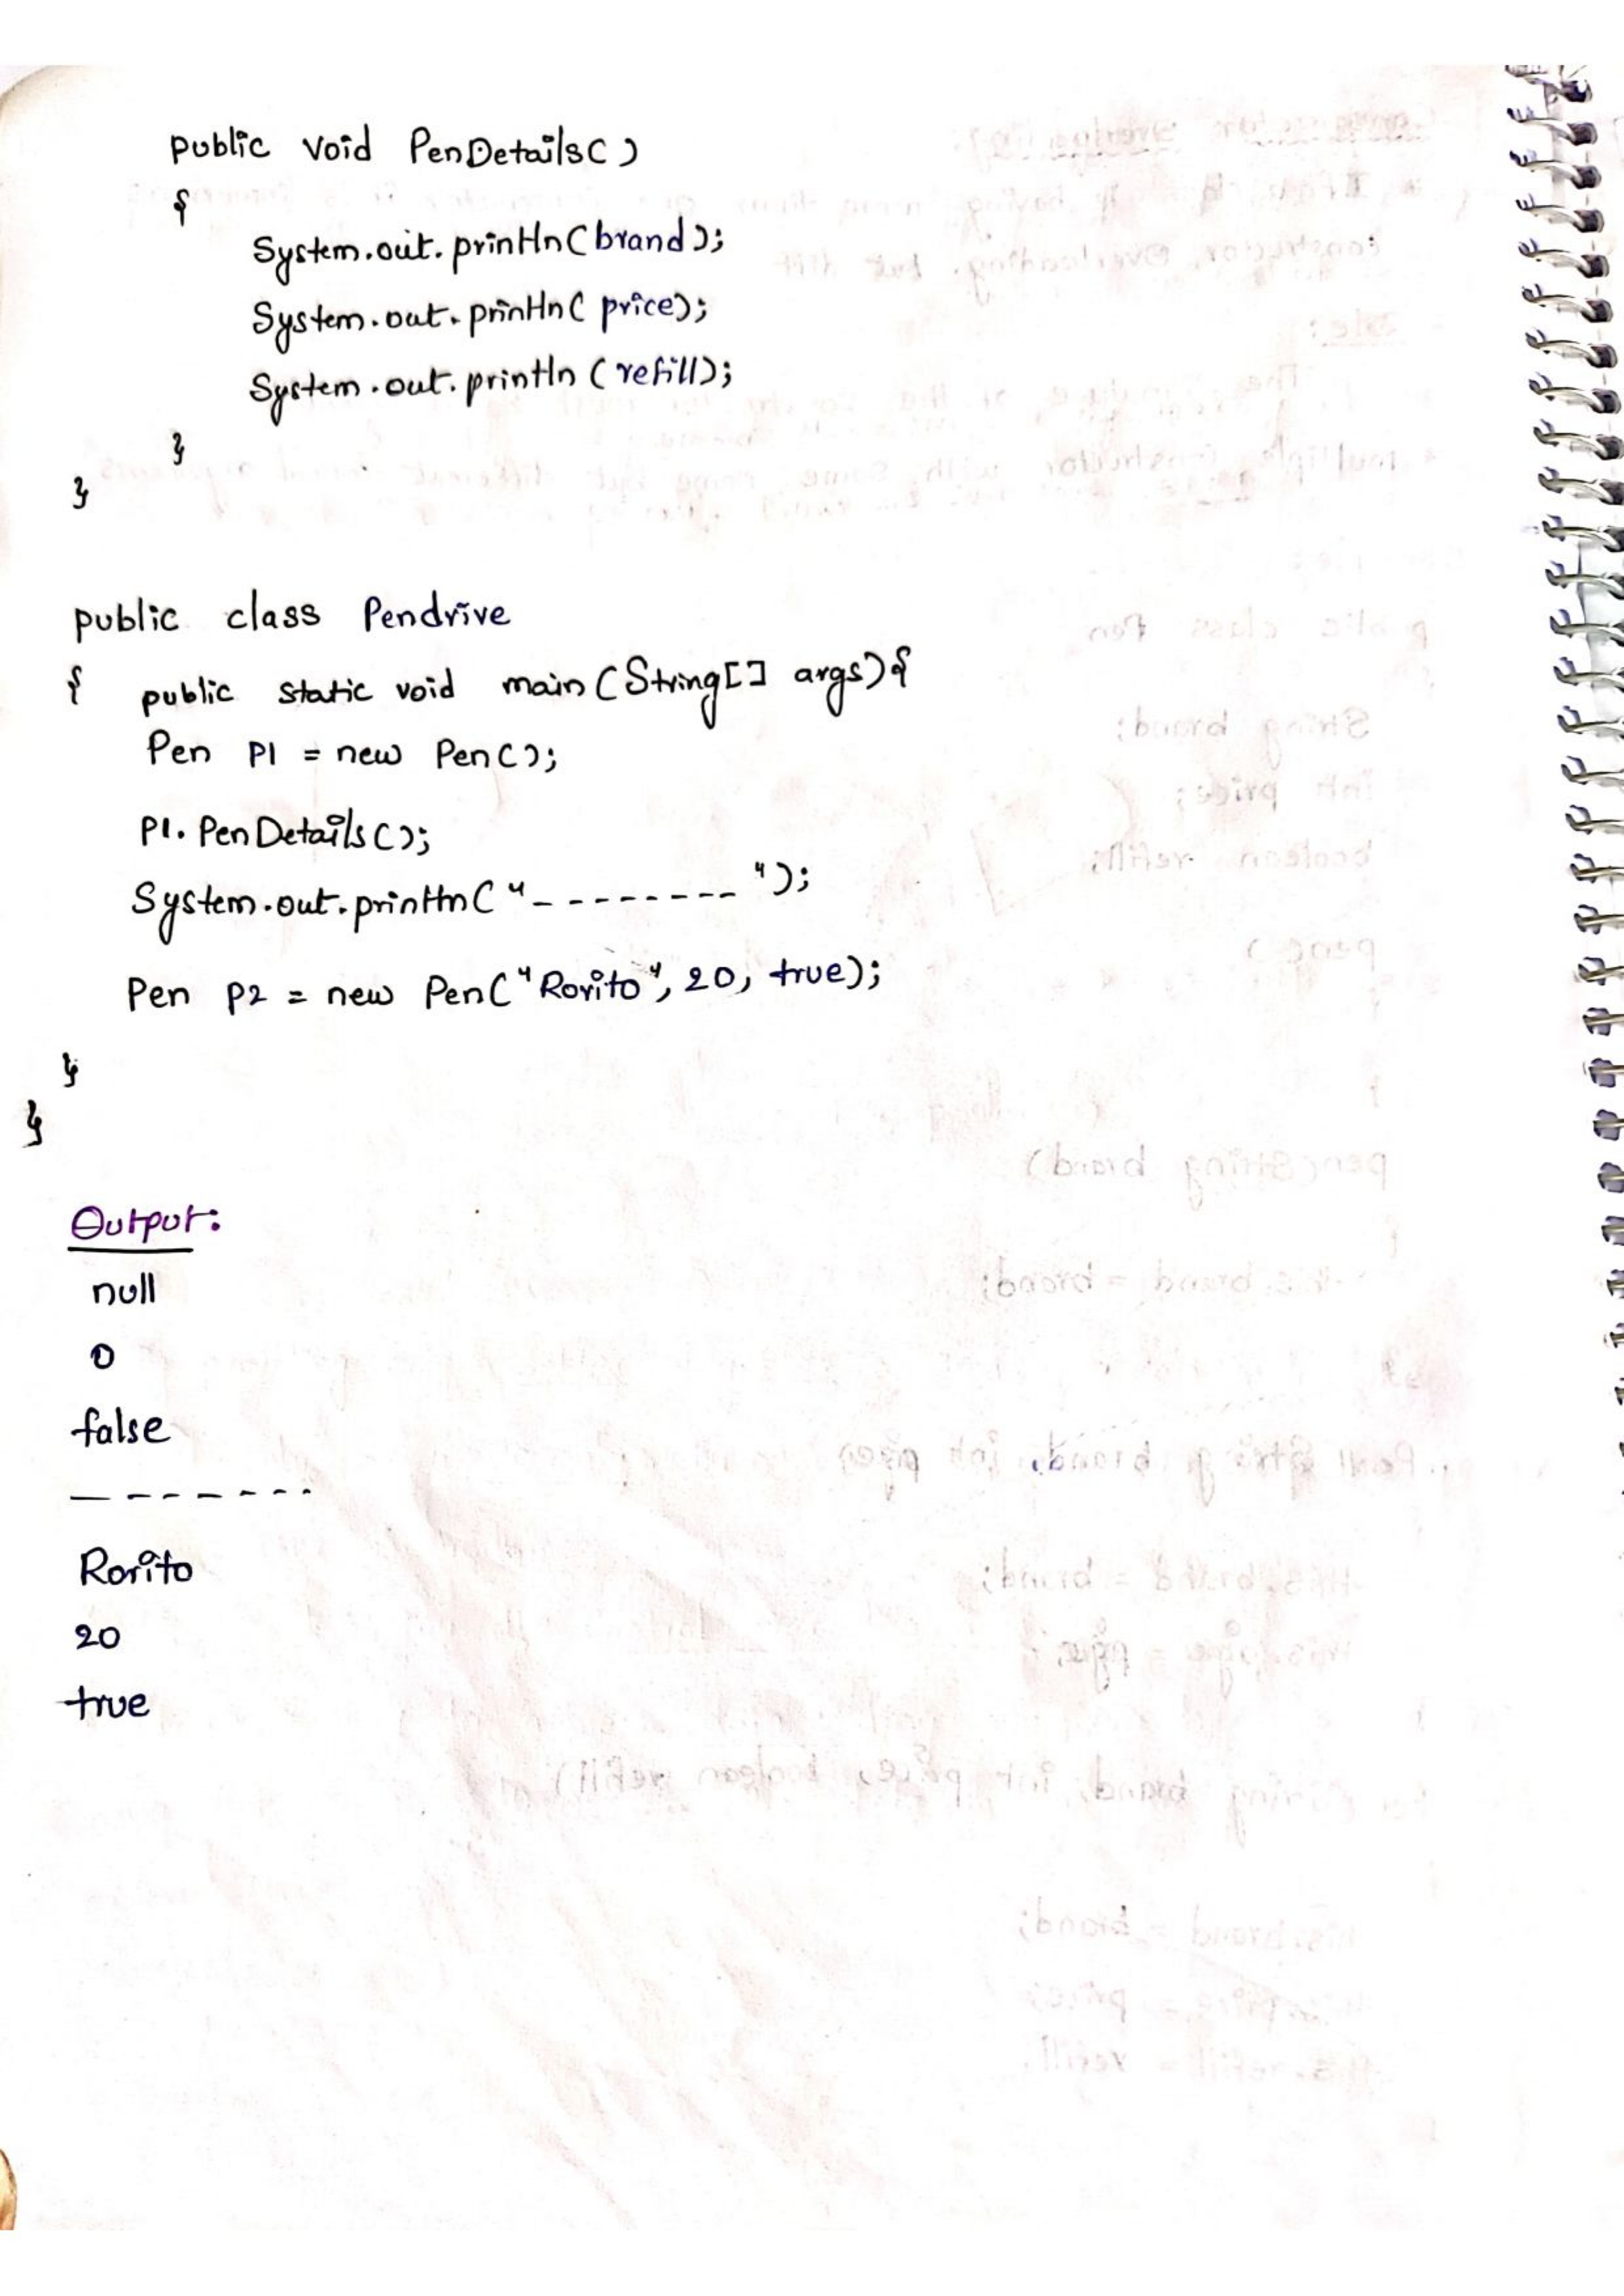 public void PenDetails()
{
System.out.println(brand);
System.out.println( price);
System.out.println (refill);
}
}
public class Pendrive
{ public static void main(String[] args){
Pen P1 = new Pen();
P1.PenDetails();
System.out.println("---------");
Pen P2 = new Pen("Rorito", 20, true);
}
}
Output:
null
0
false
-------
Rorito
20
true